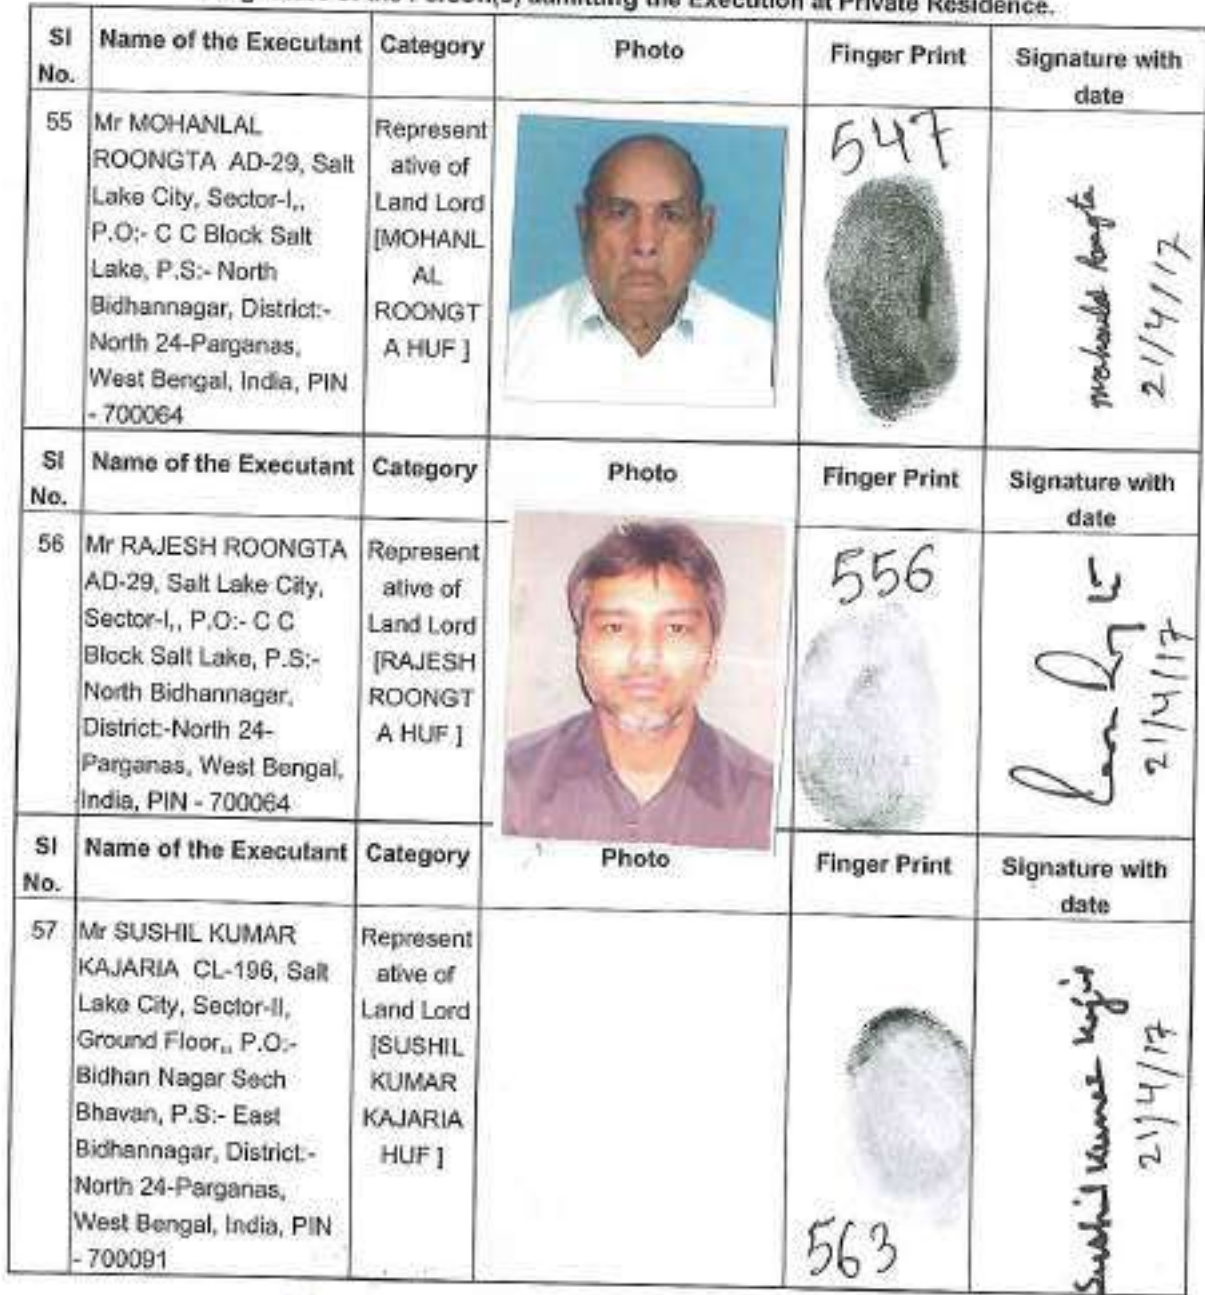 of the Person(s) admitting the Execution at Private Residence.
Sl No. Name of the Executant Category Photo Finger Print Signature with date
55 Mr MOHANLAL
ROONGTA AD-29, Salt
Lake City, Sector-I,,
P.O:- C C Block Salt
Lake, P.S:- North
Bidhannagar, District:-
North 24-Parganas,
West Bengal, India, PIN
- 700064
Represent
ative of
Land Lord
[MOHANL
AL
ROONGT
A HUF ]
547
Mohanlal Roongta
21/4/17
Sl No. Name of the Executant Category Photo Finger Print Signature with date
56 Mr RAJESH ROONGTA
AD-29, Salt Lake City,
Sector-I,, P.O:- C C
Block Salt Lake, P.S:-
North Bidhannagar,
District:-North 24-
Parganas, West Bengal,
India, PIN - 700064
Represent
ative of
Land Lord
[RAJESH
ROONGT
A HUF ]
556
21/4/17
Sl No. Name of the Executant Category Photo Finger Print Signature with date
57 Mr SUSHIL KUMAR
KAJARIA CL-196, Salt
Lake City, Sector-II,
Ground Floor,, P.O:-
Bidhan Nagar Sech
Bhavan, P.S:- East
Bidhannagar, District:-
North 24-Parganas,
West Bengal, India, PIN
- 700091
Represent
ative of
Land Lord
[SUSHIL
KUMAR
KAJARIA
HUF ]
563
Sushil Kumar
21/4/17